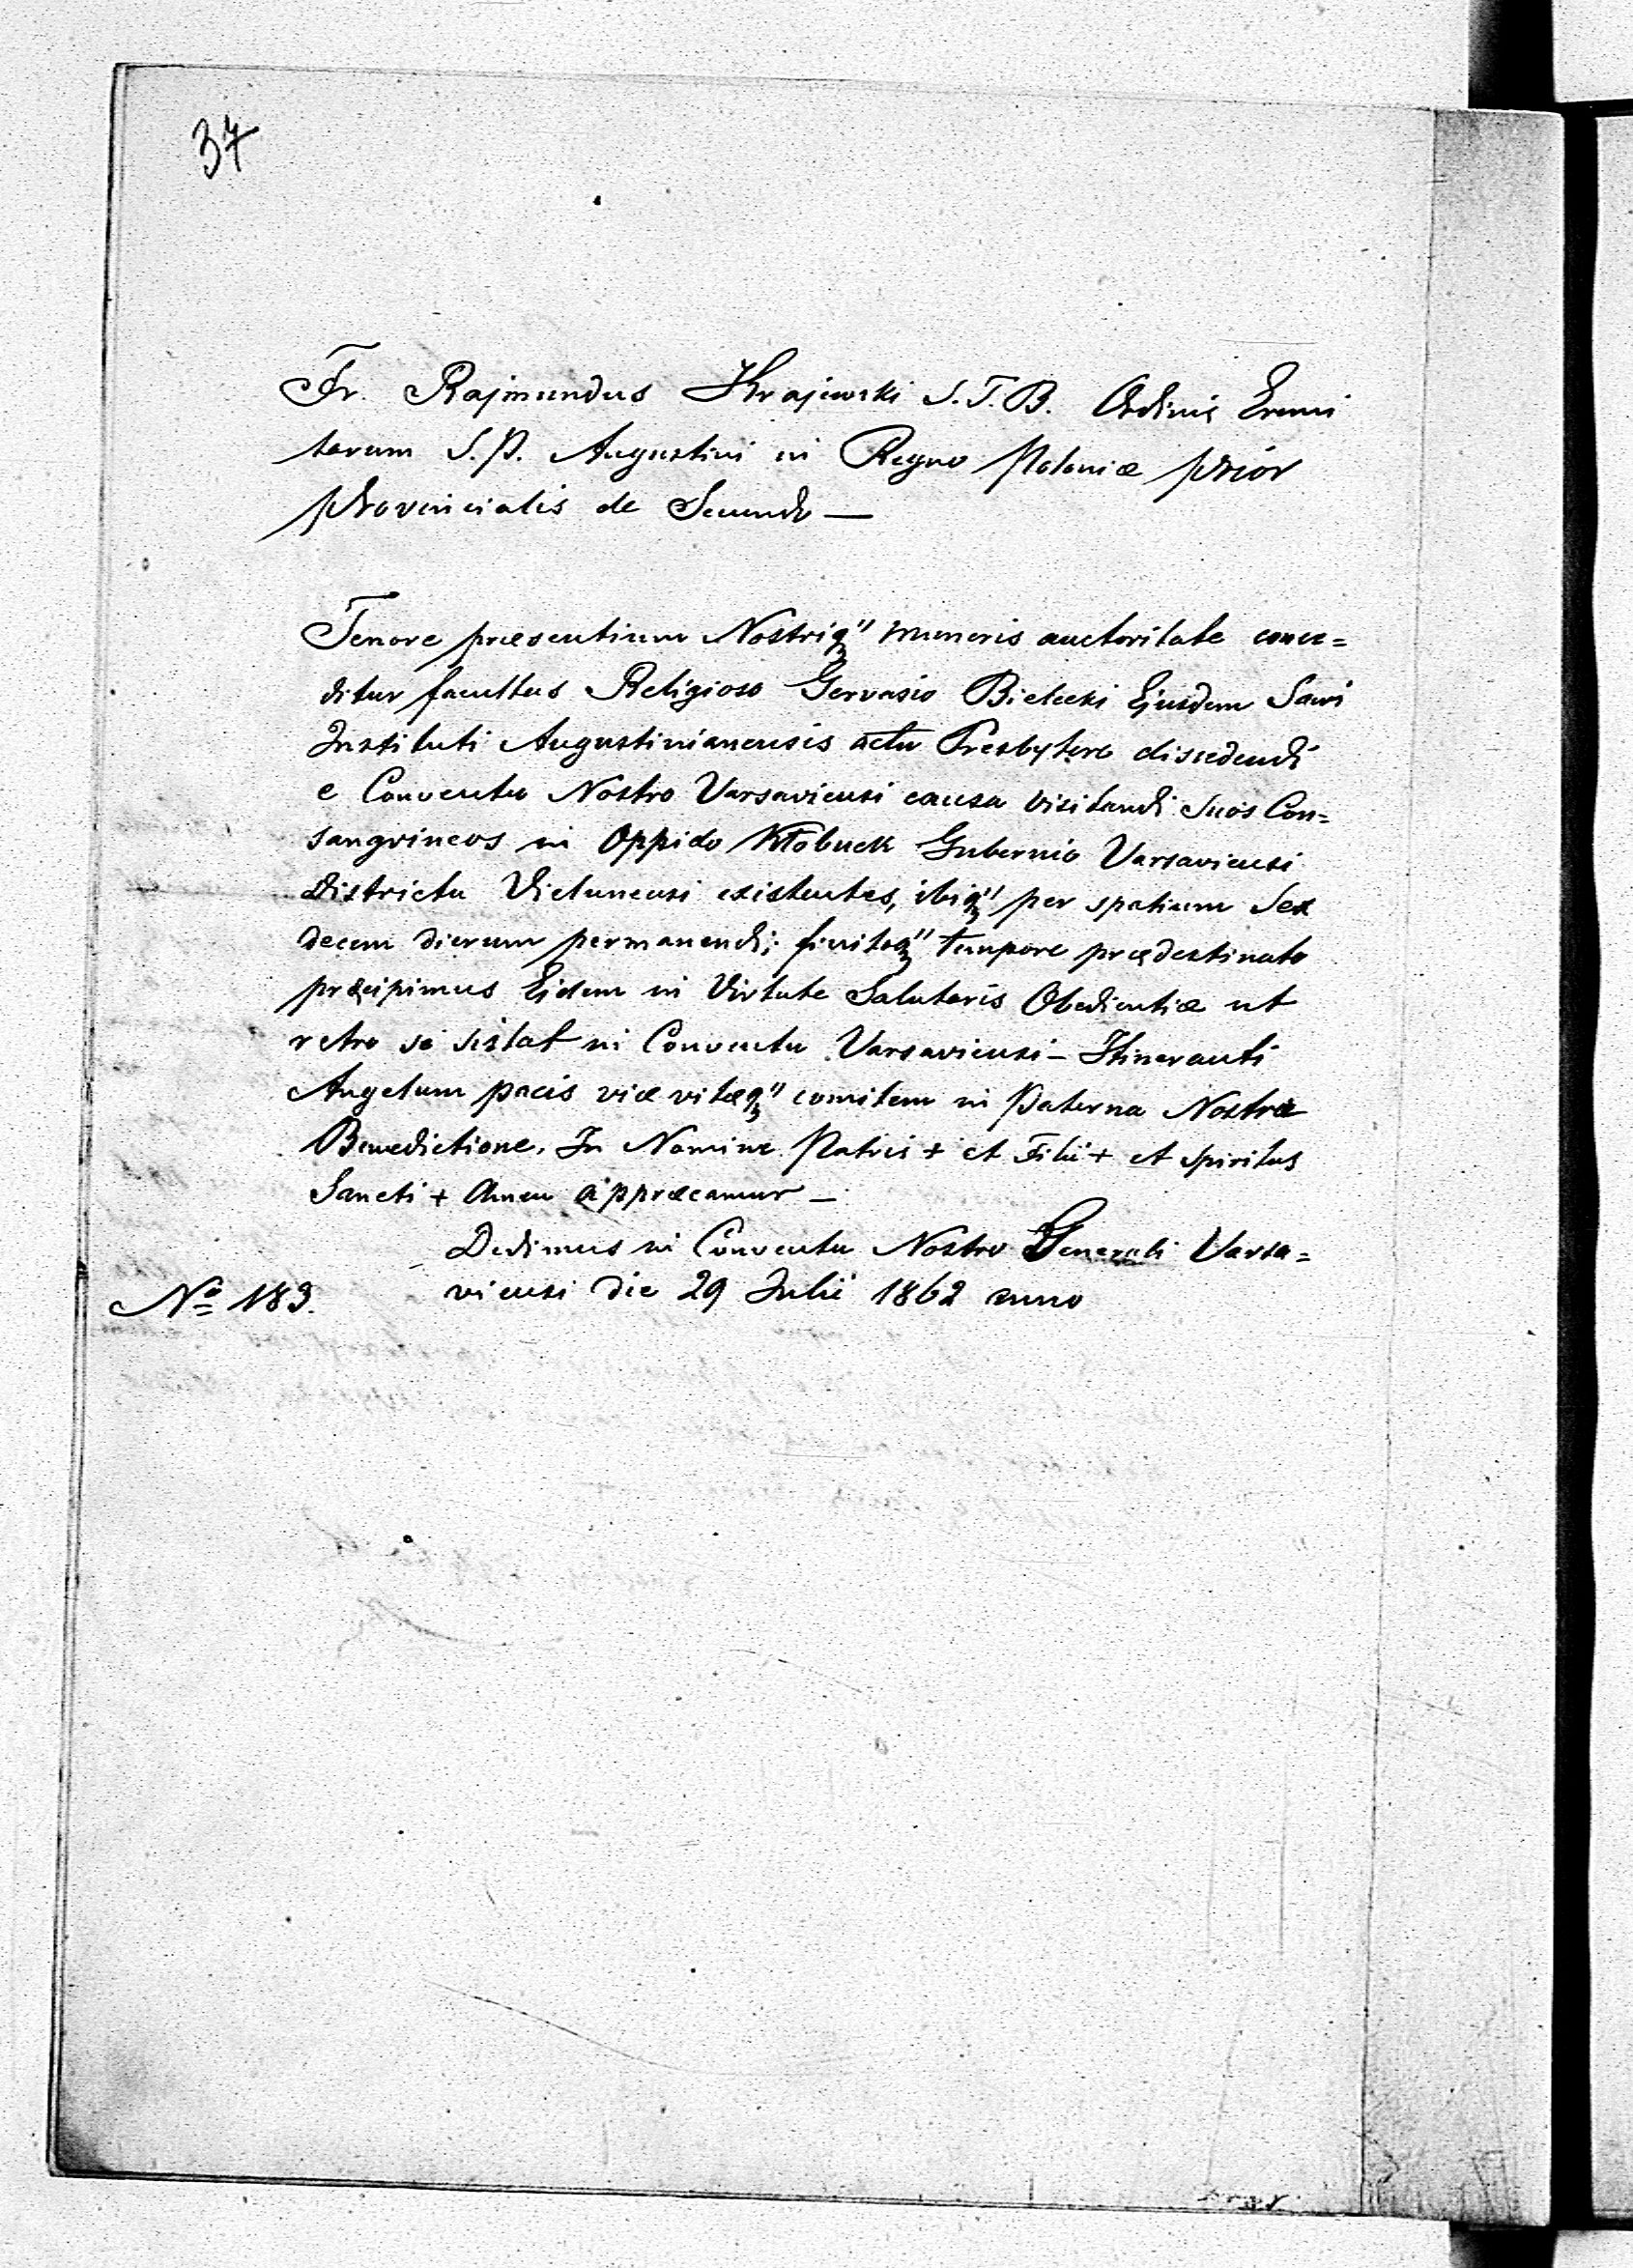 37
Fr. Rajmundus Krajewski S.T.B. Ordinis Eremi
tarum S.P. Augustini in Regno Poloniæ Prior
Provincialis de Secundo —
Tenore præsentium Nostriq" muneris auctoritate conce=
ditur facultas Religioso Gervasio Bielecki Ejusdem Sacri
Instituti Augustinianensis actu Presbytero discedendi
e Conventu Nostro Varsaviensi causa visitandi suos Con=
sangvineos in Oppido Kłobuck Gubernio Varsaviensi
Districtu Vielunensi existentes, ibiq" per spatium Sex
decem dierum permanendi; finitoq" tempore prædestinato
præcipimus Eidem in Virtute Salutaris Obedientiæ ut
retro se sistat in Conventu Varsaviensi — Itineranti
Angelum pacis viæ vitæq" comitem in Paterna Nostra
Benedictione. In Nomine Patris + et Filii + et Spiritus
Sancti + Amen appræcamur —
Dedimus in Conventu Nostro Generali Varsa=
viensi die 29 Julii 1862 anno
No 183.